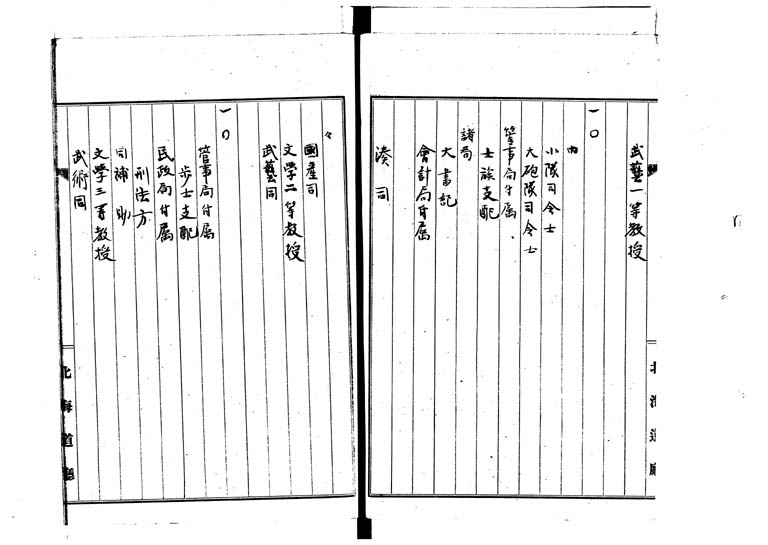 武藝一等教授
一〇
内
小隊司令士
大砲隊司令士
管事局付属、
士族支配
諸局
大書記
會計局付属
湊司
北海道廳
〃
國產司
文學二等教授
武藝同
一〇
管事局付属
歩士支配
民政局付属
刑法方
司補助
文學三等教授
武術同
北海道廳